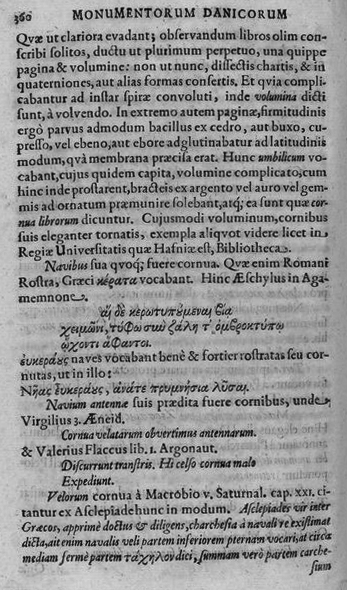 360 MONUMENTORUM DANICORUM
Qvæ ut clariora evadant; observandum libros olim con-
scribi solitos, ductu ut plurimum perpetuo, una quippe
pagina & volumine: non ut nunc, dissectis chartis, & in
quaterniones, aut alias formas consertis. Et qvia compli-
cabantur ad instar spiræ convoluti, inde volumina dicti
sunt, à volvendo. In extremo autem paginæ, firmitudinis
ergò parvus admodum bacillus ex cedro, aut buxo, cu-
presso, vel ebeno, aut ebore adglutinabatur ad latitudinis
modum, qvâ membrana præcisa erat. Hunc umbilicum vo-
cabant, cujus quidem capita, volumine complicato, cum
hinc inde prostarent, bracteis ex argento vel auro vel gem-
mis ad ornatum præmunire solebant, atq; ea sunt quæ cor-
nua librorum dicuntur. Cujusmodi voluminum, cornibus
suis eleganter tornatis, exempla aliqvot videre licet in
Regiæ Universitatis quæ Hafniæ est, Bibliotheca.
Navibus sua qvoq; fuere cornua. Qvæ enim Romani
Rostra, Græci κέρατα vocabant. Hinc Æschylus in Aga-
memnone.
αἱ δὲ κερωτυπούμεναι βίᾳ
χειμῶνι, τύφω σὺν ζάλη τ' ὀμβροκτύπω
ὤχοντι ἄφαντοι.
ἐυκεράυς naves vocabant benè & fortier rostratas seu cor-
nutas, ut in illo:
Νῆας ἐυκεράυς, ἀνάτε πρυμνήσια λῦσαι.
Navium antennæ suis prædita fuere cornibus, unde
Virgilius 3. Æneid.
Cornua velatarum obvertimus antennarum.
& Valerius Flaccus lib. 1. Argonaut.
Discurrunt transtris. Hi celso cornua malo
Expediunt.
Velorum cornua à Macrobio v. Saturnal. cap. XXI. ci-
tantur ex Asclepiade hunc in modum. Asclepiades vir inter
Græcos, apprimè doctus & diligens, charchesia à navali re existimat
dicta, ait enim navalis veli partem inferiorem pternam vocari, at circa
mediam fermè partem τράχηλον dici, summam verò partem carche-
sium